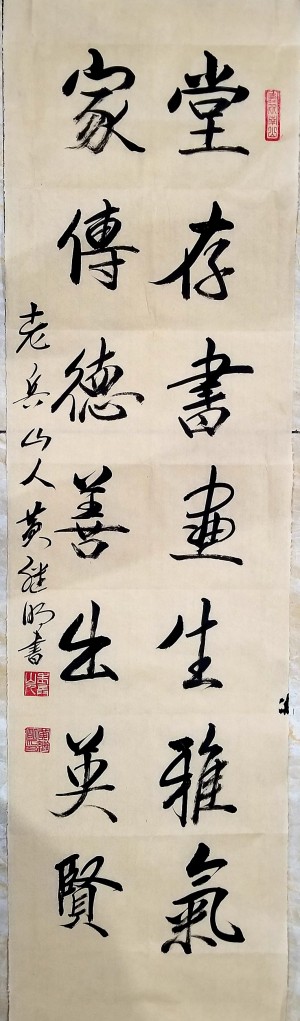 堂存書畫生雅氣
家傳德善出英賢
老兵山人黄继明書